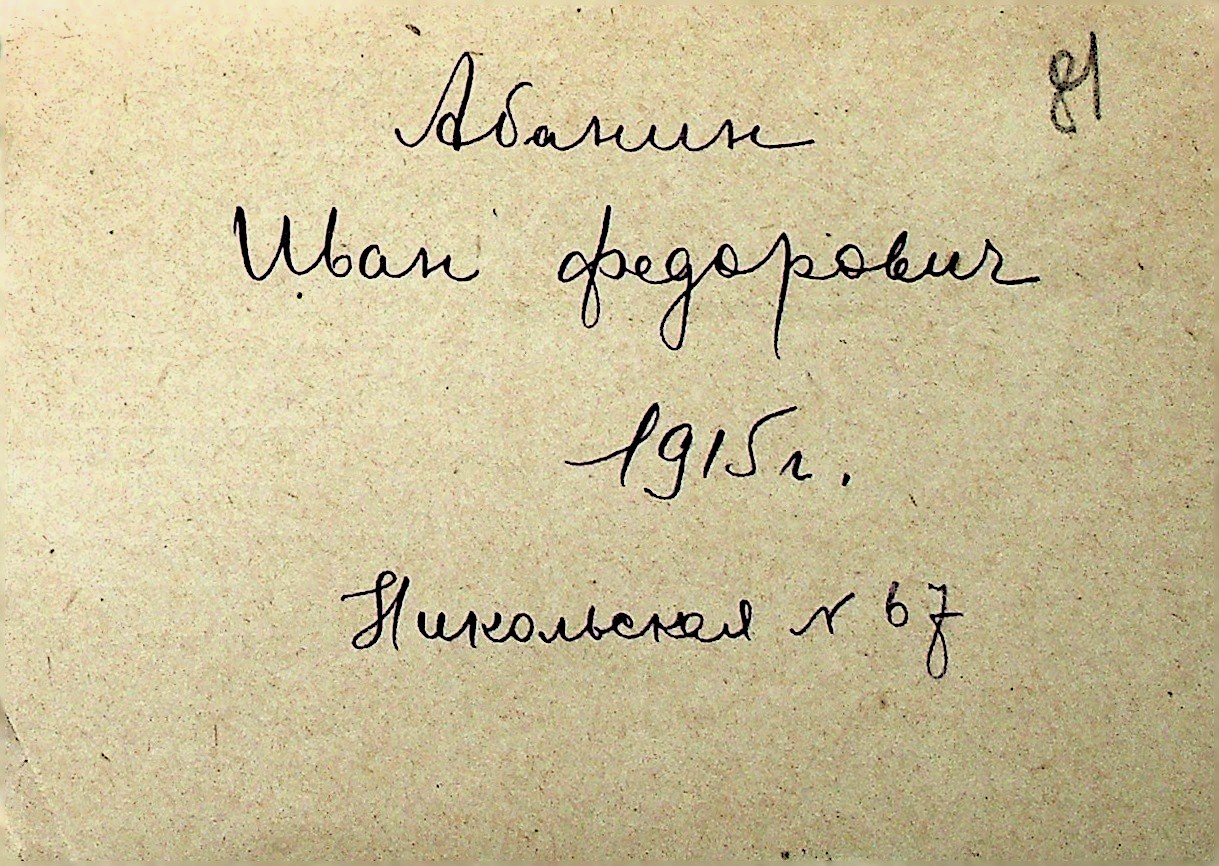 81
Абанин
Иван федорович
1915г.
Никольская N 67